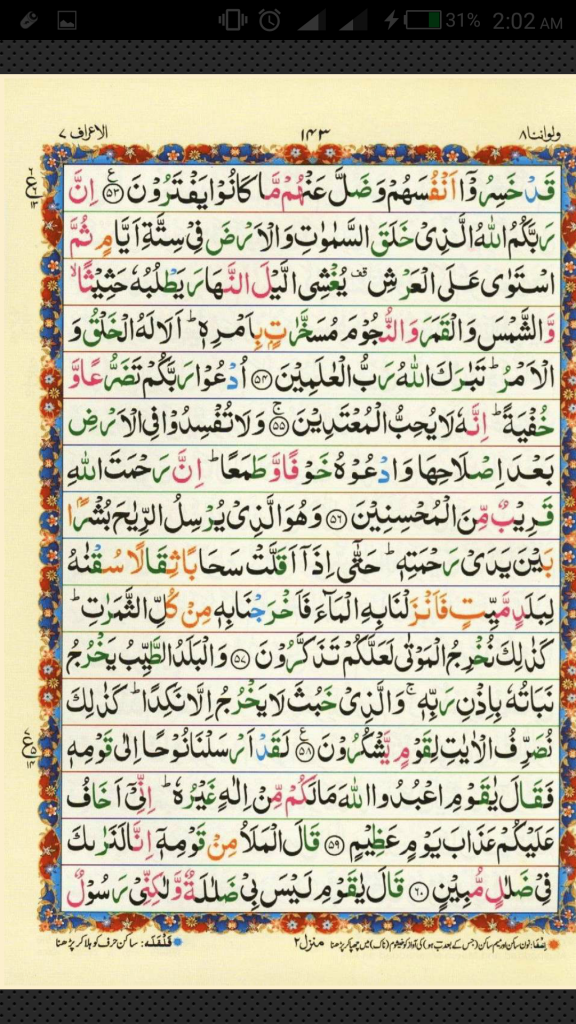 31% 2:02 AM
ولواننا ٨ ١٤٣ الاعراف ٧
قَدْ خَسِرُوْۤا اَنْفُسَهُمْ وَضَلَّ عَنْهُمْ مَّا كَانُوْا يَفْتَرُوْنَ ﴿۵۳﴾ اِنَّ
رَبَّكُمُ اللّٰهُ الَّذِیْ خَلَقَ السَّمٰوٰتِ وَالْاَرْضَ فِیْ سِتَّةِ اَیَّامٍ ثُمَّ
اسْتَوٰی عَلَی الْعَرْشِ قف یُغْشِی الَّیْلَ النَّهَارَ یَطْلُبُهٗ حَثِیْثًا ۙ
وَّالشَّمْسَ وَالْقَمَرَ وَالنُّجُوْمَ مُسَخَّرٰتٍۭ بِاَمْرِهٖ ؕ اَلَا لَهُ الْخَلْقُ وَ
الْاَمْرُ ؕ تَبٰرَكَ اللّٰهُ رَبُّ الْعٰلَمِیْنَ ﴿۵۴﴾ اُدْعُوْا رَبَّكُمْ تَضَرُّعًا وَّ
خُفْیَةً ؕ اِنَّهٗ لَا یُحِبُّ الْمُعْتَدِیْنَ ﴿۵۵﴾ۚ وَلَا تُفْسِدُوْا فِی الْاَرْضِ
بَعْدَ اِصْلَاحِهَا وَادْعُوْهُ خَوْفًا وَّطَمَعًا ؕ اِنَّ رَحْمَتَ اللّٰهِ
قَرِیْبٌ مِّنَ الْمُحْسِنِیْنَ ﴿۵۶﴾ وَهُوَ الَّذِیْ یُرْسِلُ الرِّیٰحَ بُشْرًۢا
بَیْنَ یَدَیْ رَحْمَتِهٖ ؕ حَتّٰۤی اِذَاۤ اَقَلَّتْ سَحَابًا ثِقَالًا سُقْنٰهُ
لِبَلَدٍ مَّیِّتٍ فَاَنْزَلْنَا بِهِ الْمَآءَ فَاَخْرَجْنَا بِهٖ مِنْ كُلِّ الثَّمَرٰتِ ؕ
كَذٰلِكَ نُخْرِجُ الْمَوْتٰی لَعَلَّكُمْ تَذَكَّرُوْنَ ﴿۵۷﴾ وَالْبَلَدُ الطَّیِّبُ یَخْرُجُ
نَبَاتُهٗ بِاِذْنِ رَبِّهٖ ۚ وَالَّذِیْ خَبُثَ لَا یَخْرُجُ اِلَّا نَكِدًا ؕ كَذٰلِكَ
نُصَرِّفُ الْاٰیٰتِ لِقَوْمٍ یَّشْكُرُوْنَ ﴿۵۸﴾ لَقَدْ اَرْسَلْنَا نُوْحًا اِلٰی قَوْمِهٖ
فَقَالَ یٰقَوْمِ اعْبُدُوا اللّٰهَ مَا لَكُمْ مِّنْ اِلٰهٍ غَیْرُهٗ ؕ اِنِّیْۤ اَخَافُ
عَلَیْكُمْ عَذَابَ یَوْمٍ عَظِیْمٍ ﴿۵۹﴾ قَالَ الْمَلَاُ مِنْ قَوْمِهٖۤ اِنَّا لَنَرٰىكَ
فِیْ ضَلٰلٍ مُّبِیْنٍ ﴿۶۰﴾ قَالَ یٰقَوْمِ لَیْسَ بِیْ ضَلٰلَةٌ وَّلٰكِنِّیْ رَسُوْلٌ
اِخفا: نون ساکن اور میم ساکن (جس کے بعد ب ہو) کی آواز کو خیشوم (ناک) میں چھپا کر پڑھنا منزل ٢ قلقلہ: ساکن حرف کو ہلا کر پڑھنا